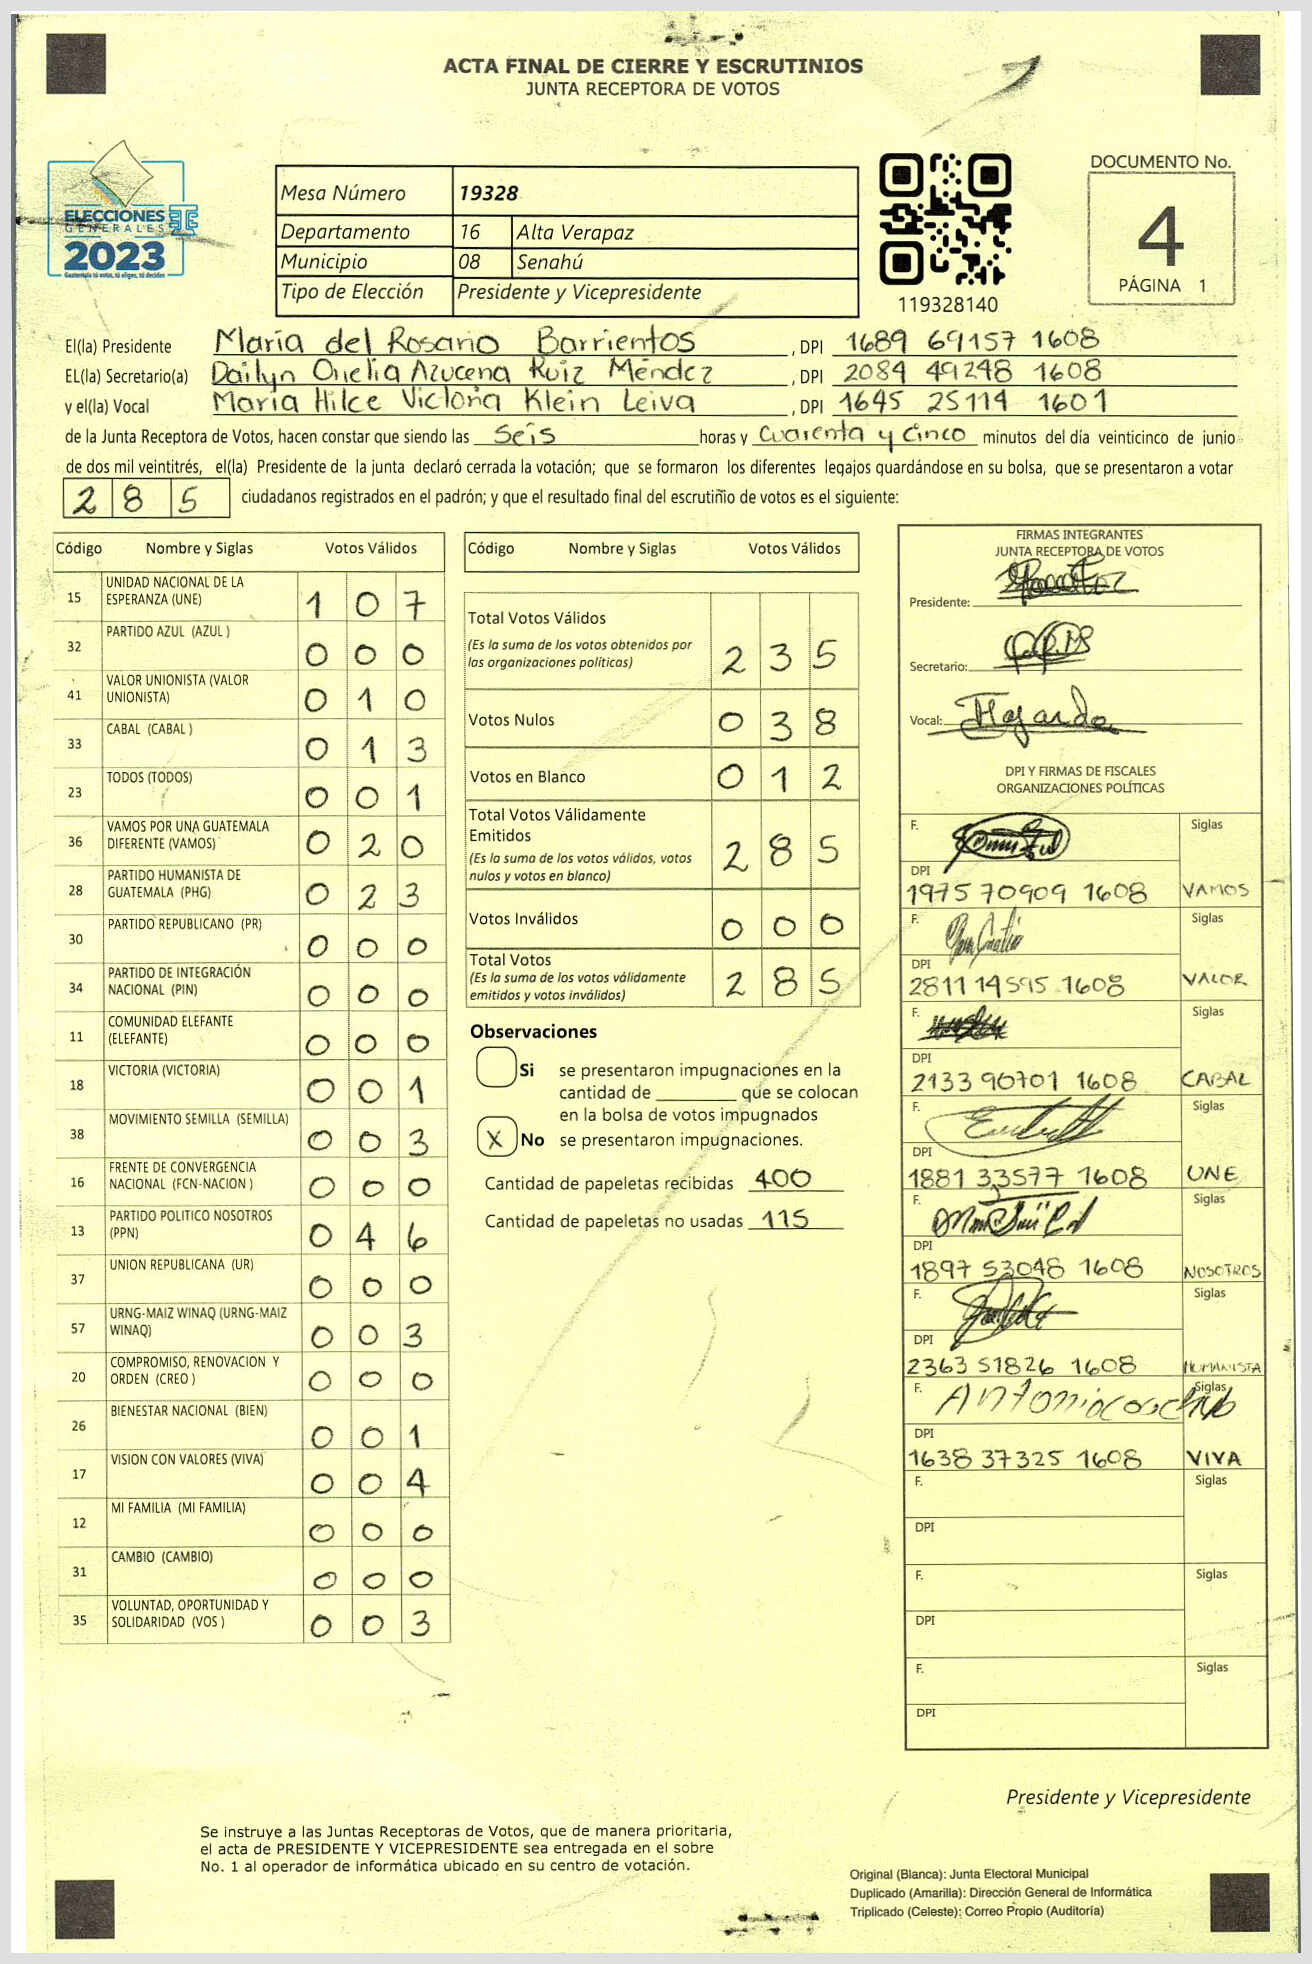 ACTA FINAL DE CIERRE Y ESCRUTINIOS
JUNTA RECEPTORA DE VOTOS
ELECCIONES
GENERALES
2023
Guatemala tú votas, tú eliges, tú decides
Mesa Número 19328
Departamento 16 Alta Verapaz
Municipio 08 Senahú
Tipo de Elección Presidente y Vicepresidente
119328140
DOCUMENTO No.
4
PÁGINA 1
El(la) Presidente María del Rosario Barrientos , DPI 1689 69157 1608
EL(la) Secretario(a) Dailyn Onelia Azucena Ruiz Méndez , DPI 2084 49248 1608
y el(la) Vocal María Hilce Victoria Klein Leiva , DPI 1645 25114 1601
de la Junta Receptora de Votos, hacen constar que siendo las Seis horas y Cuarenta y Cinco minutos del día veinticinco de junio
de dos mil veintitrés, el(la) Presidente de la junta declaró cerrada la votación; que se formaron los diferentes legajos guardándose en su bolsa, que se presentaron a votar
2 8 5 ciudadanos registrados en el padrón; y que el resultado final del escrutinio de votos es el siguiente:
Código Nombre y Siglas Votos Válidos
15 UNIDAD NACIONAL DE LA
ESPERANZA (UNE) 1 0 7
32 PARTIDO AZUL (AZUL ) 0 0 0
41 VALOR UNIONISTA (VALOR
UNIONISTA) 0 1 0
33 CABAL (CABAL ) 0 1 3
23 TODOS (TODOS) 0 0 1
36 VAMOS POR UNA GUATEMALA
DIFERENTE (VAMOS) 0 2 0
28 PARTIDO HUMANISTA DE
GUATEMALA (PHG) 0 2 3
30 PARTIDO REPUBLICANO (PR) 0 0 0
34 PARTIDO DE INTEGRACIÓN
NACIONAL (PIN) 0 0 0
11 COMUNIDAD ELEFANTE
(ELEFANTE) 0 0 0
18 VICTORIA (VICTORIA) 0 0 1
38 MOVIMIENTO SEMILLA (SEMILLA) 0 0 3
16 FRENTE DE CONVERGENCIA
NACIONAL (FCN-NACION ) 0 0 0
13 PARTIDO POLITICO NOSOTROS
(PPN) 0 4 6
37 UNION REPUBLICANA (UR) 0 0 0
57 URNG-MAIZ WINAQ (URNG-MAIZ
WINAQ) 0 0 3
20 COMPROMISO, RENOVACION Y
ORDEN (CREO ) 0 0 0
26 BIENESTAR NACIONAL (BIEN) 0 0 1
17 VISION CON VALORES (VIVA) 0 0 4
12 MI FAMILIA (MI FAMILIA) 0 0 0
31 CAMBIO (CAMBIO) 0 0 0
35 VOLUNTAD, OPORTUNIDAD Y
SOLIDARIDAD (VOS ) 0 0 3
Código Nombre y Siglas Votos Válidos
Total Votos Válidos
(Es la suma de los votos obtenidos por
las organizaciones políticas) 2 3 5
Votos Nulos 0 3 8
Votos en Blanco 0 1 2
Total Votos Válidamente
Emitidos
(Es la suma de los votos válidos, votos
nulos y votos en blanco) 2 8 5
Votos Inválidos 0 0 0
Total Votos
(Es la suma de los votos válidamente
emitidos y votos inválidos) 2 8 5
Observaciones
Si se presentaron impugnaciones en la
cantidad de ________ que se colocan
en la bolsa de votos impugnados
X No se presentaron impugnaciones.
Cantidad de papeletas recibidas 400
Cantidad de papeletas no usadas 115
FIRMAS INTEGRANTES
JUNTA RECEPTORA DE VOTOS
Presidente:
Secretario:
Vocal:
DPI Y FIRMAS DE FISCALES
ORGANIZACIONES POLÍTICAS
F. Siglas
DPI
1975 70909 1608 VAMOS
F. Siglas
DPI
2811 14595 1608 VALOR
F. Siglas
DPI
2133 90701 1608 CABAL
F. Siglas
DPI
1881 33577 1608 UNE
F. Siglas
DPI
1897 53048 1608 NOSOTROS
F. Siglas
DPI
2363 51826 1608 HUMANISTA
F. Antonio Siglas
DPI
1638 37325 1608 VIVA
F. Siglas
DPI
F. Siglas
DPI
F. Siglas
DPI
Presidente y Vicepresidente
Se instruye a las Juntas Receptoras de Votos, que de manera prioritaria,
el acta de PRESIDENTE Y VICEPRESIDENTE sea entregada en el sobre
No. 1 al operador de informática ubicado en su centro de votación.
Original (Blanca): Junta Electoral Municipal
Duplicado (Amarilla): Dirección General de Informática
Triplicado (Celeste): Correo Propio (Auditoría)